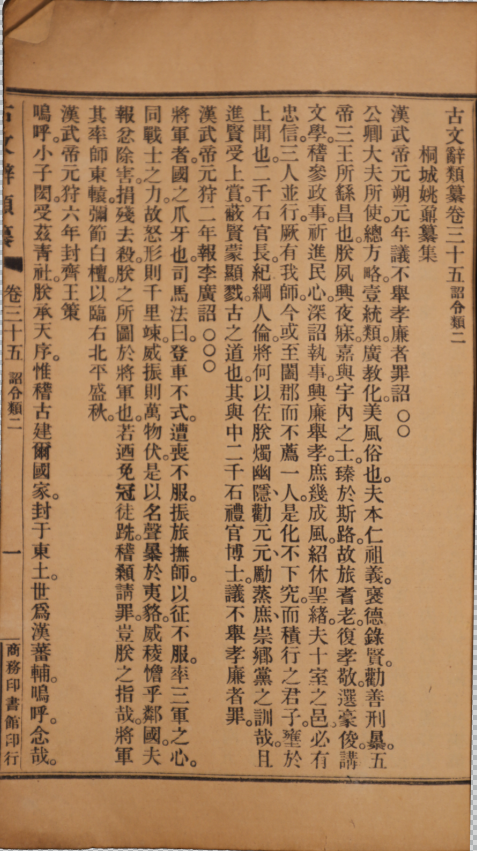 古文辭類纂卷三十五 詔令類二
桐城姚鼐纂集
漢武帝元朔元年議不舉孝廉者罪詔○○
公卿大夫所使總方略壹統類廣教化美風俗也夫本仁祖義襃德錄賢勸善刑暴五
帝三王所繇昌也朕夙興夜寐嘉與宇內之士臻於斯路故旅耆老復孝敬選豪俊講
文學稽參政事祈進民心深詔執事興廉舉孝庶幾成風紹休聖緒夫十室之邑必有
忠信三人並行厥有我師今或至闔郡而不薦一人是化不下究而積行之君子壅於
上聞也二千石官長紀綱人倫將何以佐朕燭幽隱勸元元勵蒸庶崇鄉黨之訓哉且
進賢受上賞蔽賢蒙顯戮古之道也其與中二千石禮官博士議不舉孝廉者罪
漢武帝元狩二年報李廣詔○○○
將軍者國之爪牙也司馬法曰登車不式遭喪不服振旅撫師以征不服率三軍之心
同戰士之力故怒形則千里竦威振則萬物伏是以名聲暴於夷貉威稜憺乎鄰國夫
報忿除害捐殘去殺朕之所圖於將軍也若迺免冠徒跣稽顙請罪豈朕之指哉將軍
其率師東轅彌節白檀以臨右北平盛秋
漢武帝元狩六年封齊王策
嗚呼小子閎受茲青社朕承天序惟稽古建爾國家封于東土世爲漢藩輔嗚呼念哉
古文辭類纂 卷三十五 詔令類二 一 商務印書館印行